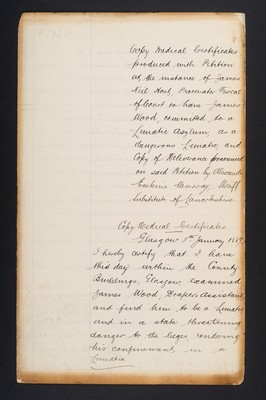 Copy Medical Certificates
produced with Petition
at the instance of James
Neil Hart, Procurator Fiscal
of Court to have James
Wood, committed to a
Lunatic Asylum, as a
dangerous Lunatic, and
Copy of Deliverance pronounced
on said Petition by Alexander
Erskine Murray Sheriff
Substitute of Lanarkshire
Copy Medical Certificates
Glasgow 5th January 1889.
I hereby certify that I have
this day within the County
Buildings, Glasgow examined
James Wood, Drapers Assistant
and find him to be a Lunatic
and in a state threatening
danger to the lieges, rendering
his confinement in a
Lunatic